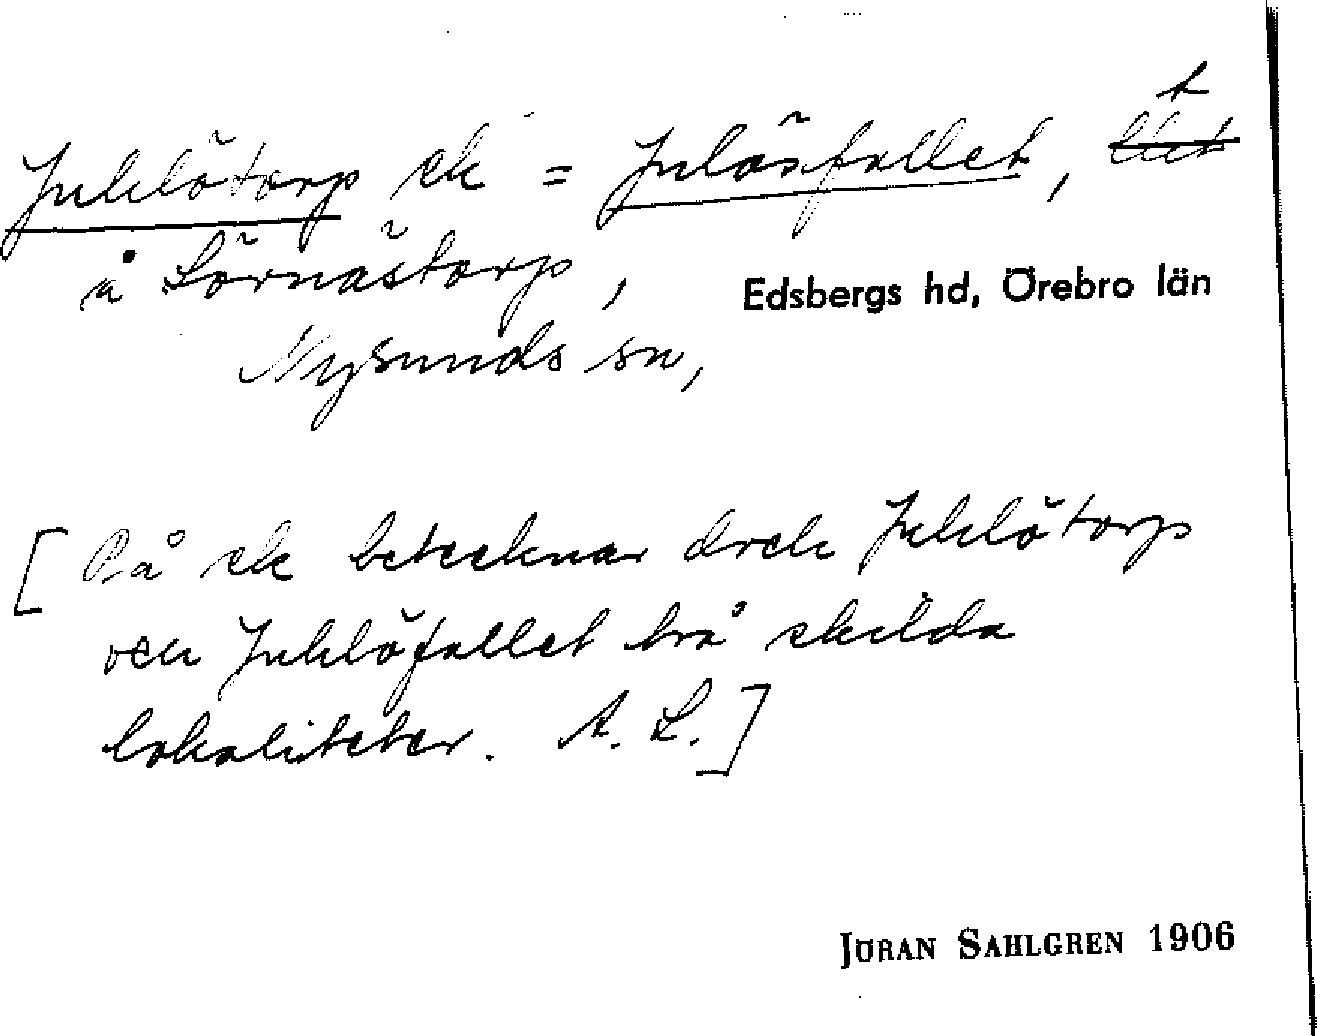 Juklötorp ek = Julösfallet, t
å Sörnästorp, Edsbergs hd, Örebro län
Nysunds sn,
[På ek betecknar dock Juklötorp
och Juklöfallet två skilda
lokaliteter. A. L.]
JÖRAN SAHLGREN 1906